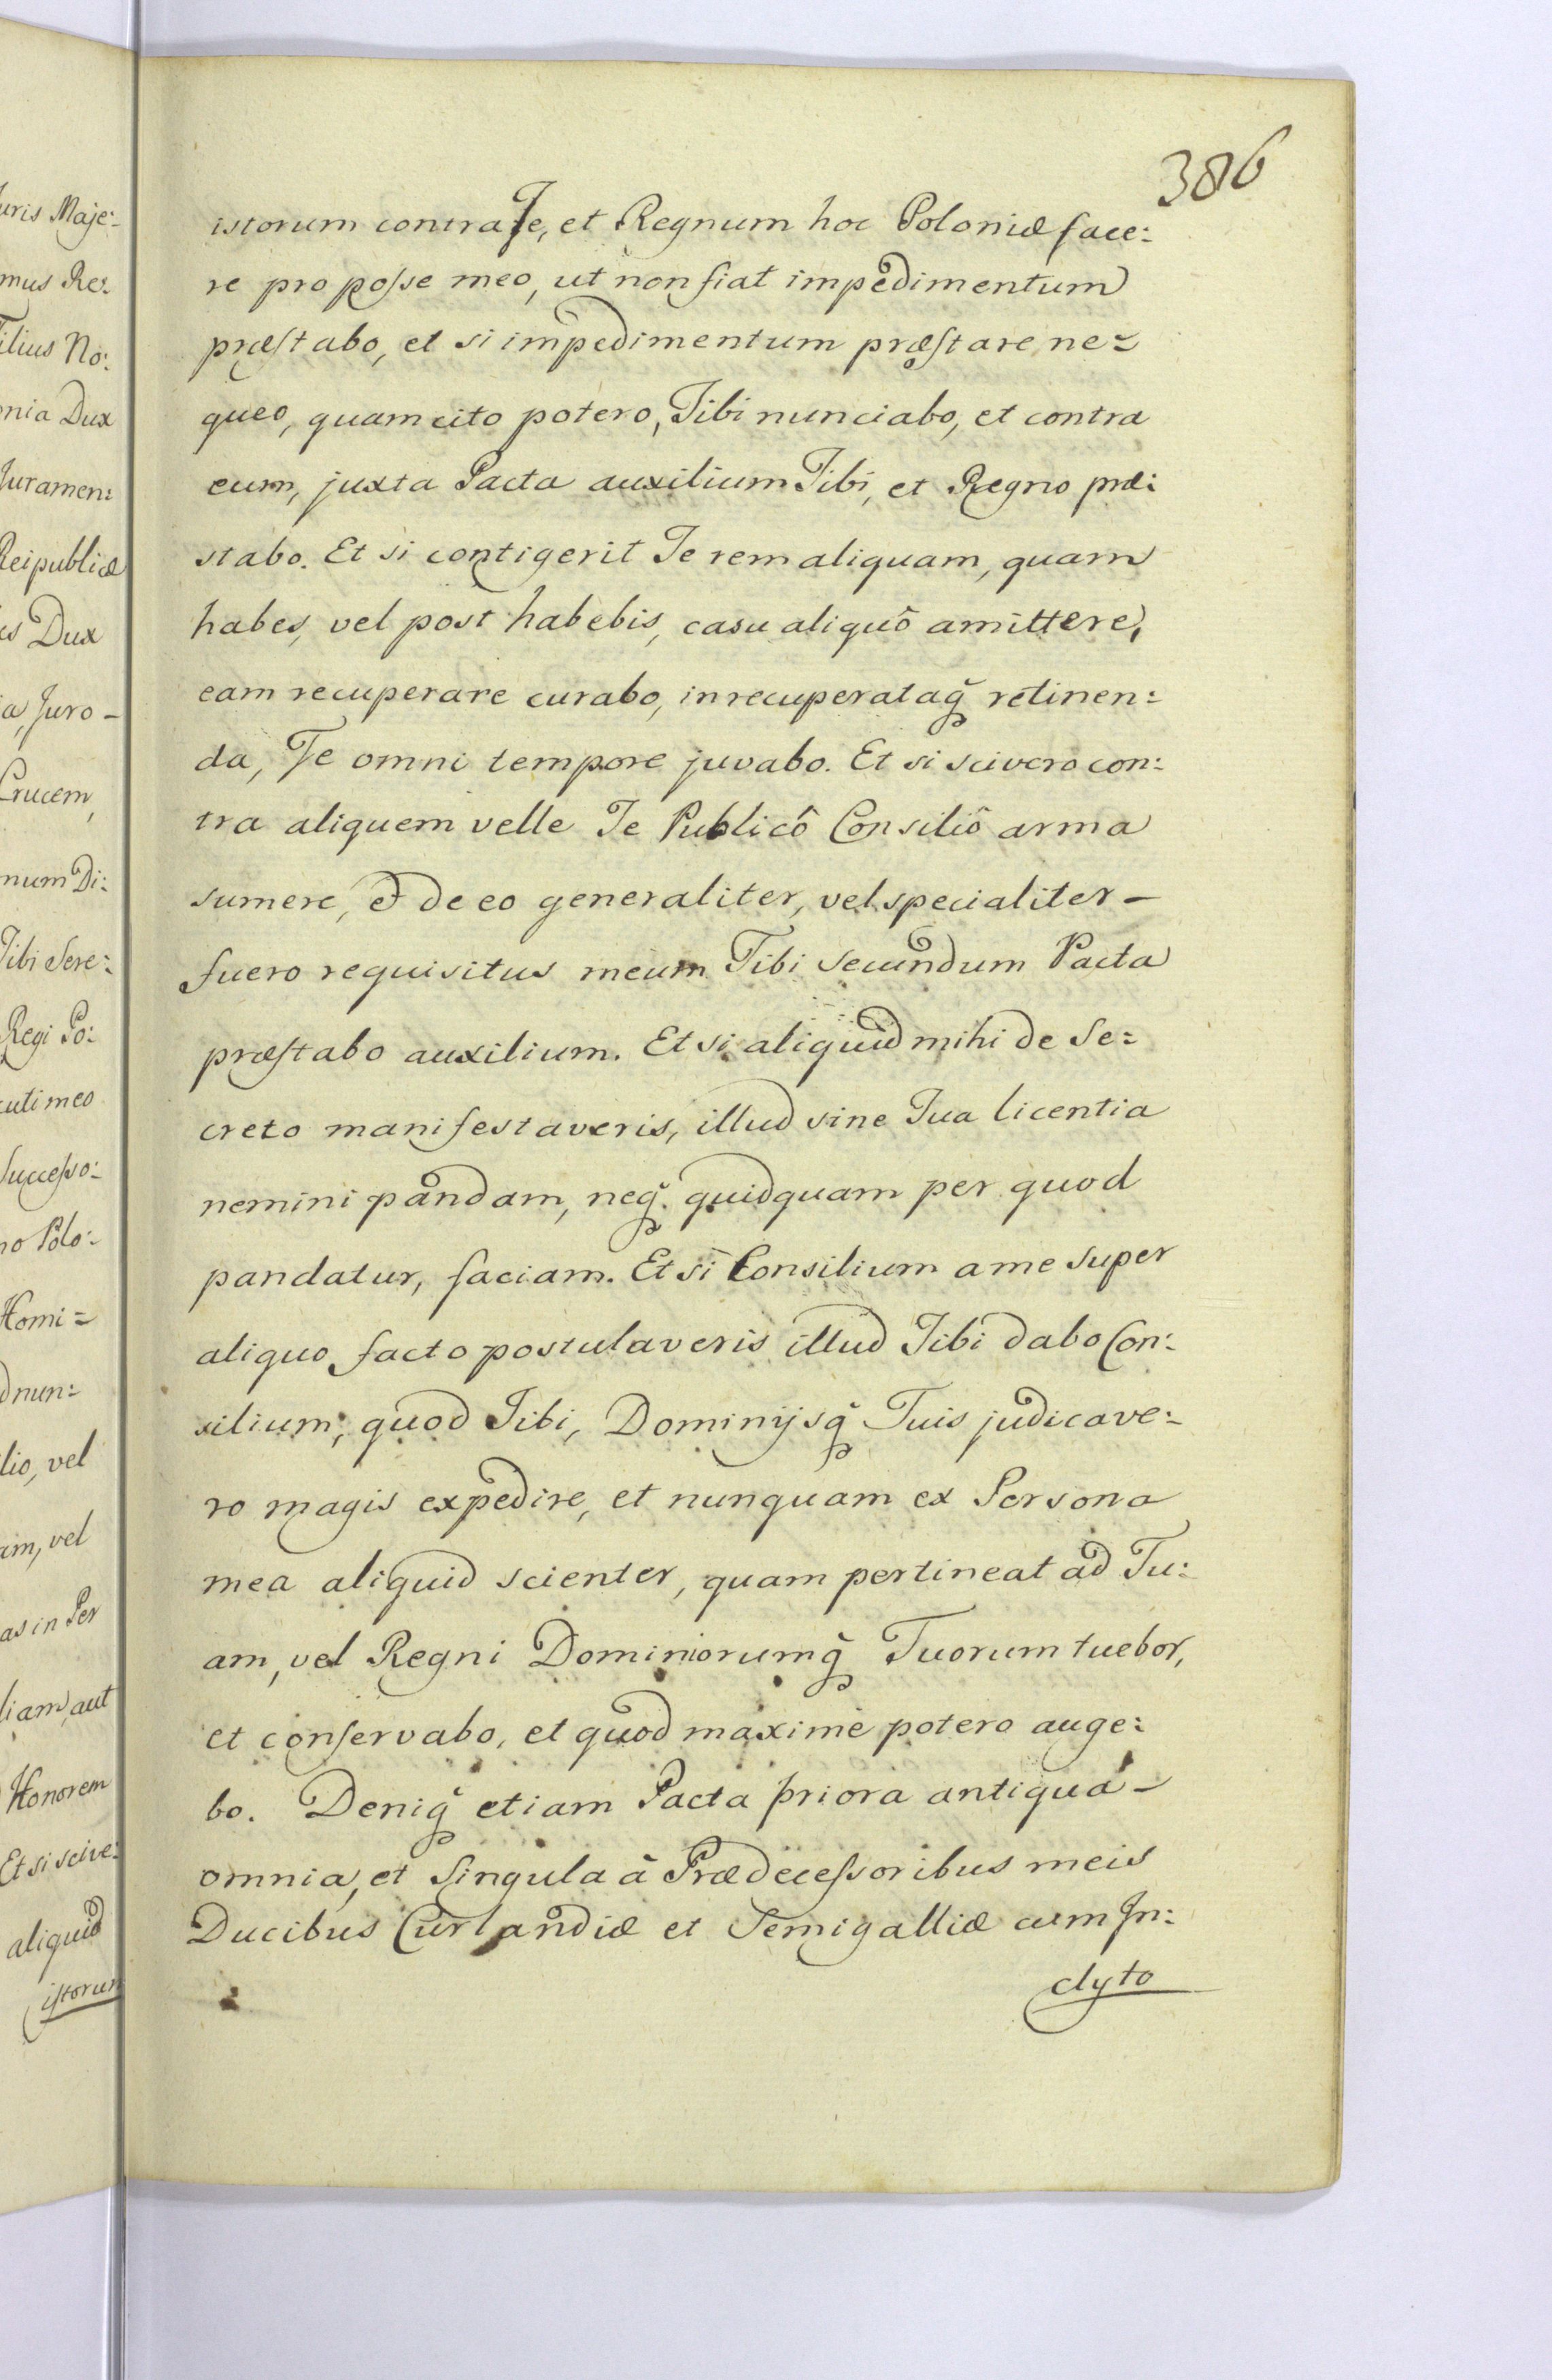 386
istorum contra Te, et Regnum hoc Poloniæ face:
re pro posse meo, ut non fiat impedimentum
præstabo, et si impedimentum præstare ne=
queo, quam cito potero, Tibi nunciabo, et contra
eum, juxta Pacta auxilium Tibi, et Regno præ:
stabo. Et si contigerit Te rem aliquam, quam
habes, vel post habebis, casu aliquô amittere,
eam recuperare curabo, in recuperataq̃ retinen:
da, Te omni tempore juvabo. Et si scivero con:
tra aliquem velle Te Publicô Consiliô arma
sumere, & de eo generaliter, vel specialiter –
fuero requisitus meum Tibi secundum Pacta
præstabo auxilium. Et si aliquid mihi de Se=
creto manifestaveris, illud sine Tua licentia
nemini pandam, neq̃. quidquam per quod
pandatur, faciam. Et si Consilium a me super
aliquo facto postulaveris illud Tibi dabo Con:
silium; quod Tibi, Dominijsq̃ Tuis judicave:
ro magis expedire, et nunquam ex Persona
mea aliquid scienter, quam pertineat ad Tu:
am, vel Regni Dominiorumq̃ Tuorum tuebor,
et conservabo, et quod maximè potero auge:
bo. Deniq̃ etiam Pacta priora antiqua –
omnia, et singula à Prædecessoribus meis
Ducibus Curlandiæ et Semigalliæ cum In:
clyto
uris Maje:
mus Re:
ilius No:
onia Dux
Juramen:
Reipublicæ
us Dux
ia, Juro –
Crucem,
num Di:
Tibi Sere:
Regi Po:
cuti meo
Successo:
no Polo:
Homi=
d nun:
lio, vel
am, vel
as in Per
liam, aut
Honorem
Et si scive:
aliquid
istorum